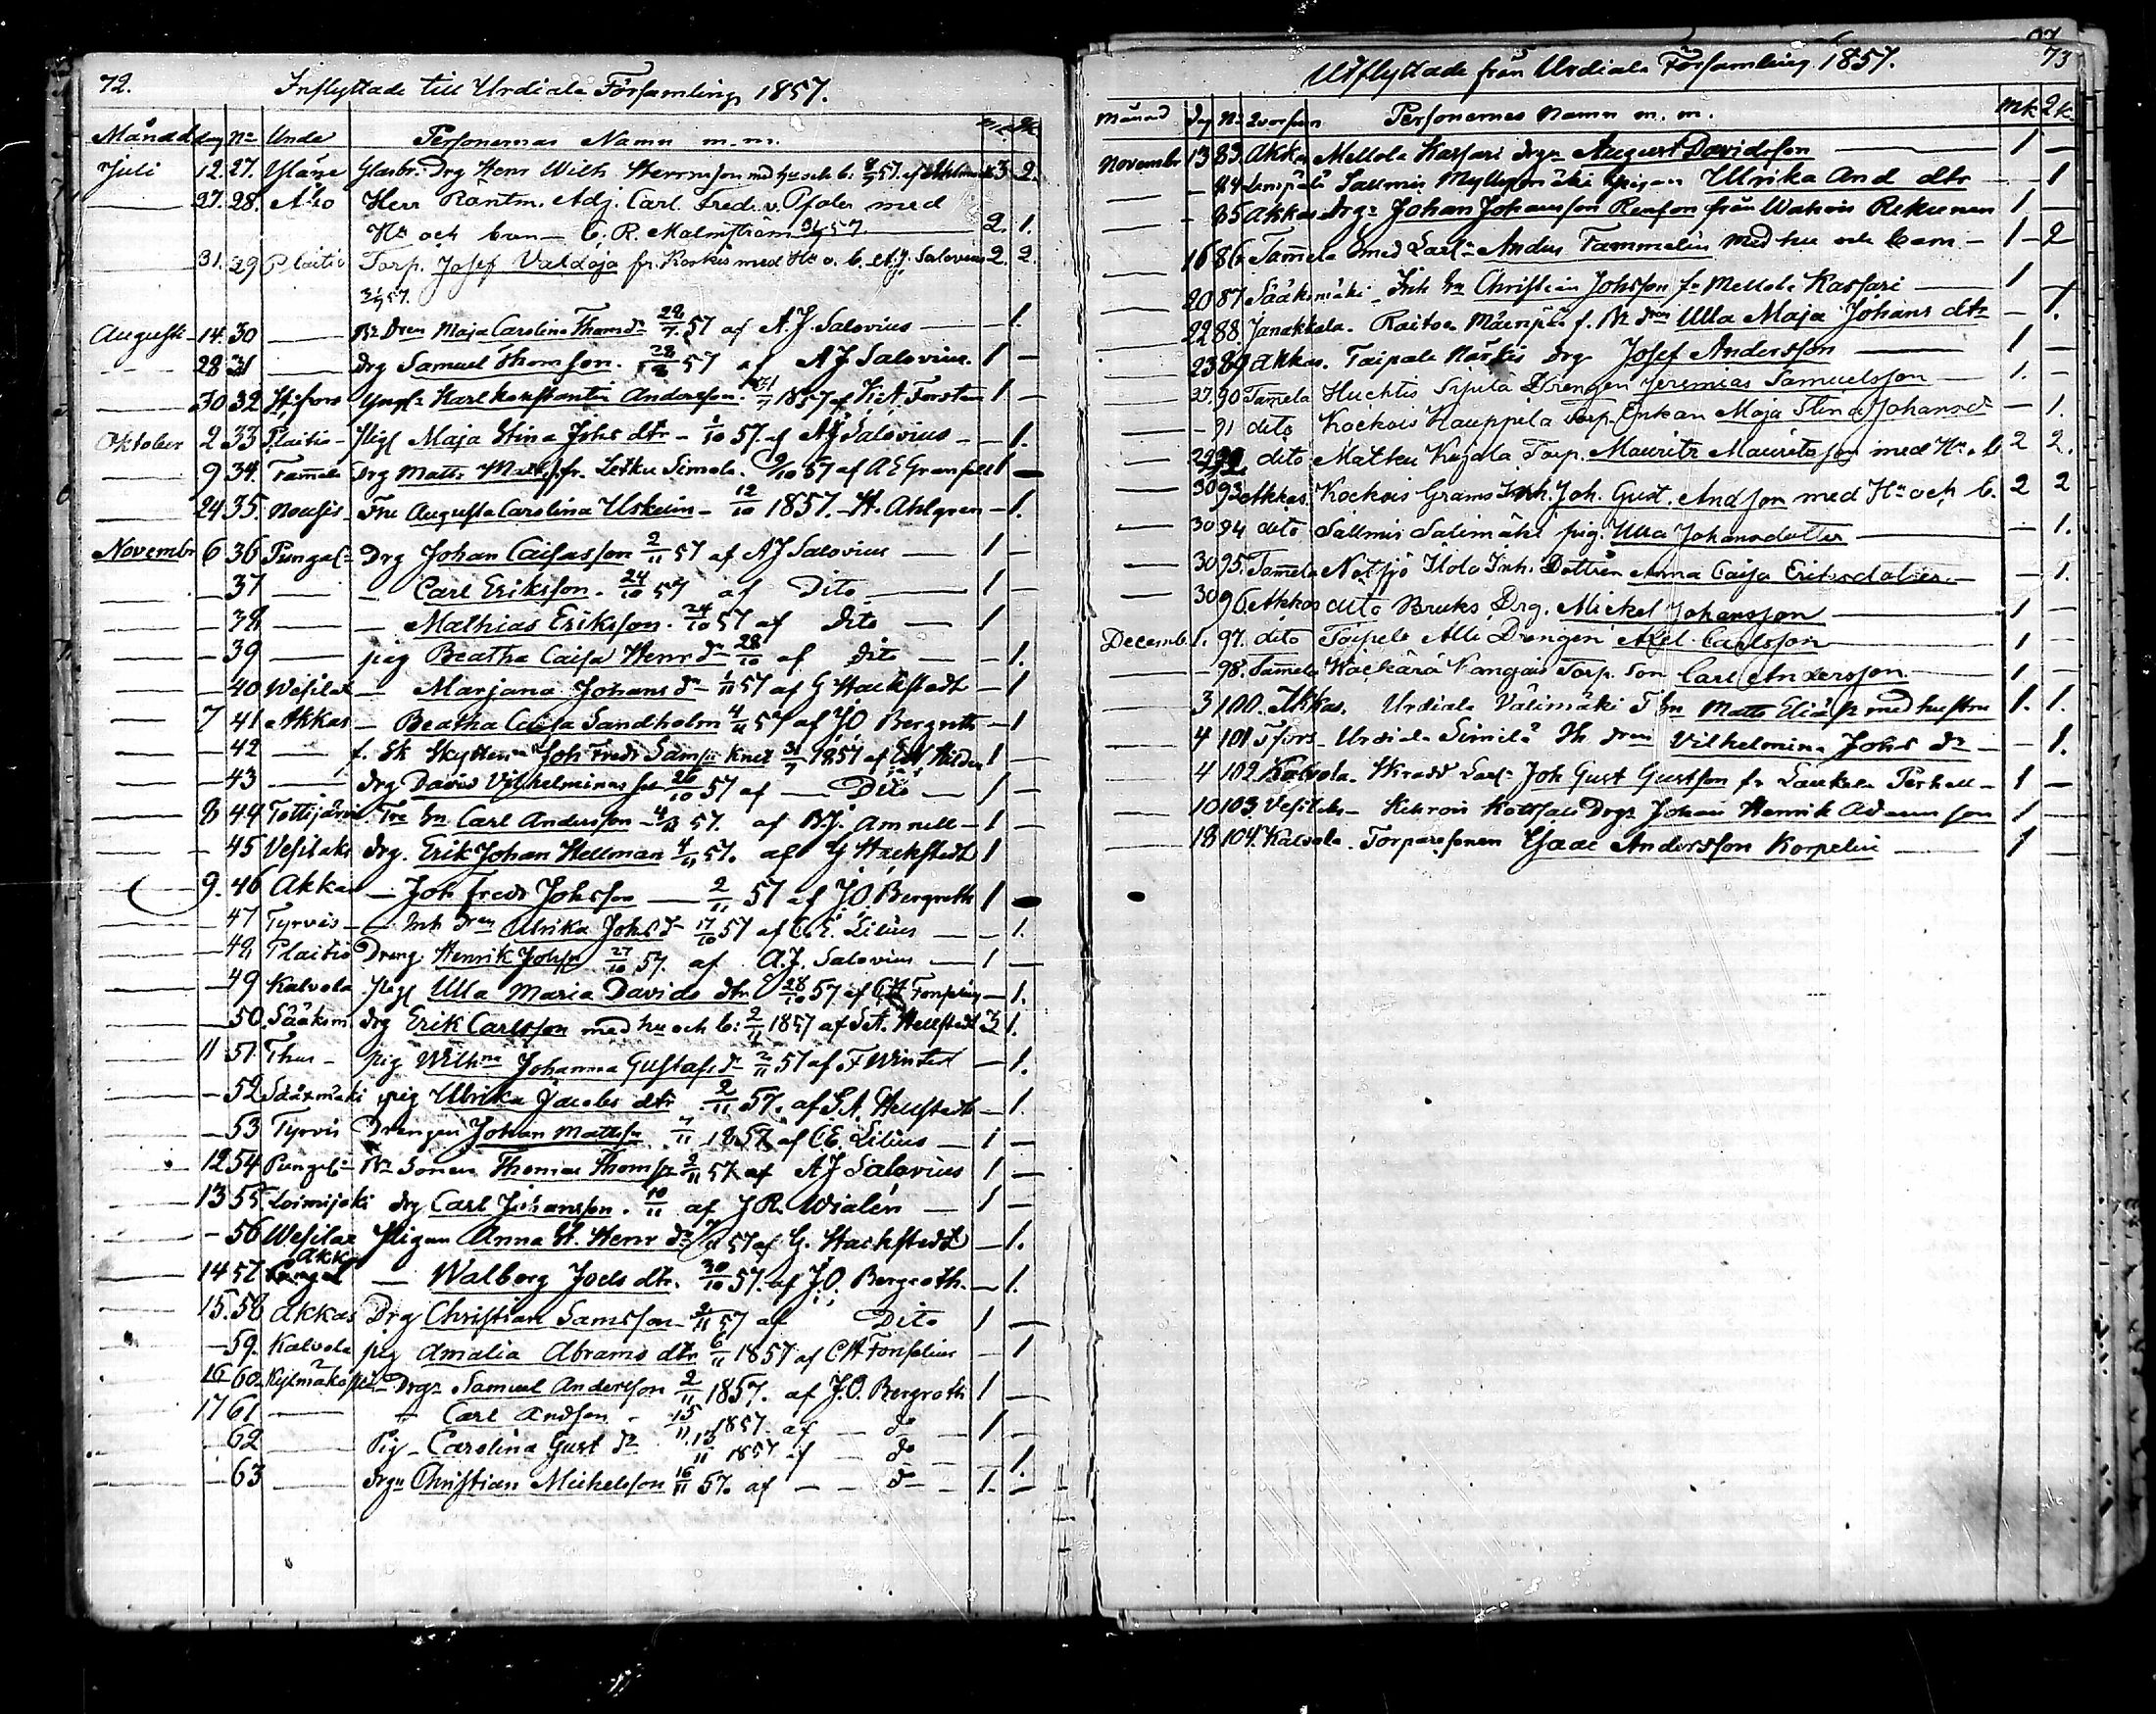 72.
Inflyttade till Urdiala Församling 1857.
Månad dag No Unde Personernas Namn m.m. mk qk
Juli 12. 27. Yläne Glasbr. Drg Henr Wilh Herrmson med hu och b. 57. af 3 2.
27. 28. Åbo Herr Räntm. Adj. Carl Fredr. v. Pfaler med
Hu och barn C. R. Malmström 57 2. 1.
31. 29 Plaitis Torp. Josef Valdoja fr. Koskis med Hu o. b. A.J. Salovius 2. 2.
57.
Augusti 14. 30 Dren Maja Carolina Thoms dr 28/7 57 af A. J. Salovius — 1.
28 31 drg Samuel Thomson. 57 af A J Salovius. 1 —
30 32 H:fors Yngl. Karl Konstantin Andersson. 1857 af K.A. Forsten 1 —
Oktober 2 33 Plaitis Pig Maja Stina Johs dtr 1/10 57. af A J Salovius — 1.
9 34. Tam̄ela Drg Matts fr. Letku Simola. 9/10 57 af A E Granfelt 1 —
24 35. Nousis Augusta Carolina Uskelin 12/10 1857. H. Ahlgren — 1.
Novembr 6 36 Pungal. Drg Johan Caisasson 2/11 57 af A J Salovius 1 —
— 37 — Carl Eriksson. 24/10 57 af Dito 1 —
— 38 — Mathias Eriksson. 24/10 57 af Dito 1
— 39 — pig Beatha Caisa Henr dr 28/10 af Dito — 1.
— 40 Vesilax — Marjana Johans dr 1/11 57 af G Hackstedt — 1
7 41 Akkas — Beatha Caisa Sandholm 4/11 57 af J.O. Bergroth — 1
— 42 — f. Sk Skytten Joh Fredr 1857 af 1 —
— 43 — drg David Vilhelminas son 26/10 57 af — Dito — 1 —
8 44 Tottijärvi Sn Carl Andersson 57. af B.J. Amnell 1 —
— 45 Vesilaks drg. Erik Johan Hellman 4/11 57. af G Hackstedt 1
9. 46 Akkas — Joh Fredr Johsson 2/11 57 af J.O. Bergroth 1 —
— 47 Tyrvis — Inh dren Ulrika Johs dr 17/10 57 af C.E. Lilius — 1.
— 48 Plaitis Dreng Henrik Johsn 27/10 57. af A.J. Salovius 1 —
— 49 Kalvola Pig Ulla Maria Davids dtr 28/10 57 af C H Fonselius — 1.
— 50 Sääksm. drg Erik Carlsson med hu och b: 2/11 1857 af S.A. Hellstedt 3 1.
11 51. Thus — pig Wilhna Johanna Gustafs dr 2/11 57 af F Winter — 1.
— 52 Sääxmäki pig Ulrika Jacobs dtr 2/11 57. af S.A. Hellstedt — 1.
— 53 Tyrvis Drengen Johan Mattsn 7/11 1857 af C E. Lilius 1 —
12 54 Pungal. Sonen Thomas Thomsn 9/11 57. af A J Salovius 1 —
13 55 Loimijoki drg Carl Johansson. 10/11 af J R. Wialén 1 —
— 56 Wesilax Pigan Anna St. Henr dr 57 af G. Hackstedt — 1.
14 57 Akk — Walborg Joels dtr. 30/10 57. af J.O. Bergroth. — 1.
15. 58 Akkas Drg Christian Samsson 2/11 57 af Dito 1 —
— 59. Kalvola pig Amalia Abrams dtr 6/11 1857 af C H Fonselius — 1
16 60 Kylmäkoski Drgn Samuel Andersson 2/11 1857. af J.O. Bergroth 1 —
17 61 — Carl Andson 15/11 1857. af — do 1 —
— 62 — Pig. Carolina Gust dr 15/11 1857 af — do — 1.
— 63 — drgn Christian Mickelsson 16/11 57. af — do 1. —
73
Utflyttade från Urdiala Församling 1857.
Månad Dag No Qvarfrån Personernes Namn m. m. mk qk.
Novembr 13 83. Akkas Mellola Kassari drgn August Davidsson 1 —
— 84 Lempälä Salmis Myllymäki pigan Ulrika And dtr — 1
— 85 Akkas Drgn Johan Johansson Renfors från Wahois Rekunen 1 —
16 86 Tam̄ela Smed Lärl. Anders Tammelin med hu och barn 1 — 2
20 87 Sääksmäki Inh Sn Christian Johsson fr Mellola Kassari 1
22 88. Janakkala. Raitos Mäenpää f. dren Ulla Maja Johans dtr — 1.
23 89 Akkas. Taipale Närkis drg Josef Andersson 1 —
27. 90 Tam̄ela Huchtis Sipilä Drengen Jeremias Samuelsson 1. —
— 91 dito Kockois Kauppela Torp. Enkan Maja Stina Johansdr — 1.
29 92. dito Matku Kujala Torp. Mauritz Mauritsson med Hu o. b 2 2.
30 93 Akkas. Kockois Grams Inh. Joh. Gust. Andson med Hu och b. 2 2
30 94 dito Salmis Salimäki pig. Ulla Johansdotter — 1.
30 95. Tam̄ela Notsjö Ilola Inh. Dottren Anna Caisa Eriksdotter — 1.
30 96 Akkas dito Bruks Drg. Mickel Johansson 1 —
Decemb. 1. 97. dito Taipale Alli Drengen Axel Carlsson 1 —
— 98. Tam̄ela Kangais Torp. Son Carl Andersson 1 —
3 100. Akkas. Urdiala Välimäki T Sn Matts Eliæsn med hustru 1. 1.
4 101 T:fors Urdiala Simila Th dren Vilhelmina Johs dr — 1.
4 102 Kalvola. Skradd Lärl. Joh Gust Gustson fr Laukela Perhell 1 —
10 103 Vesilaks Drgn Johan Henrik Adamsson 1 —
18 104. Kalvola. Torparesonen Isaac Andersson Korpelin 1 —